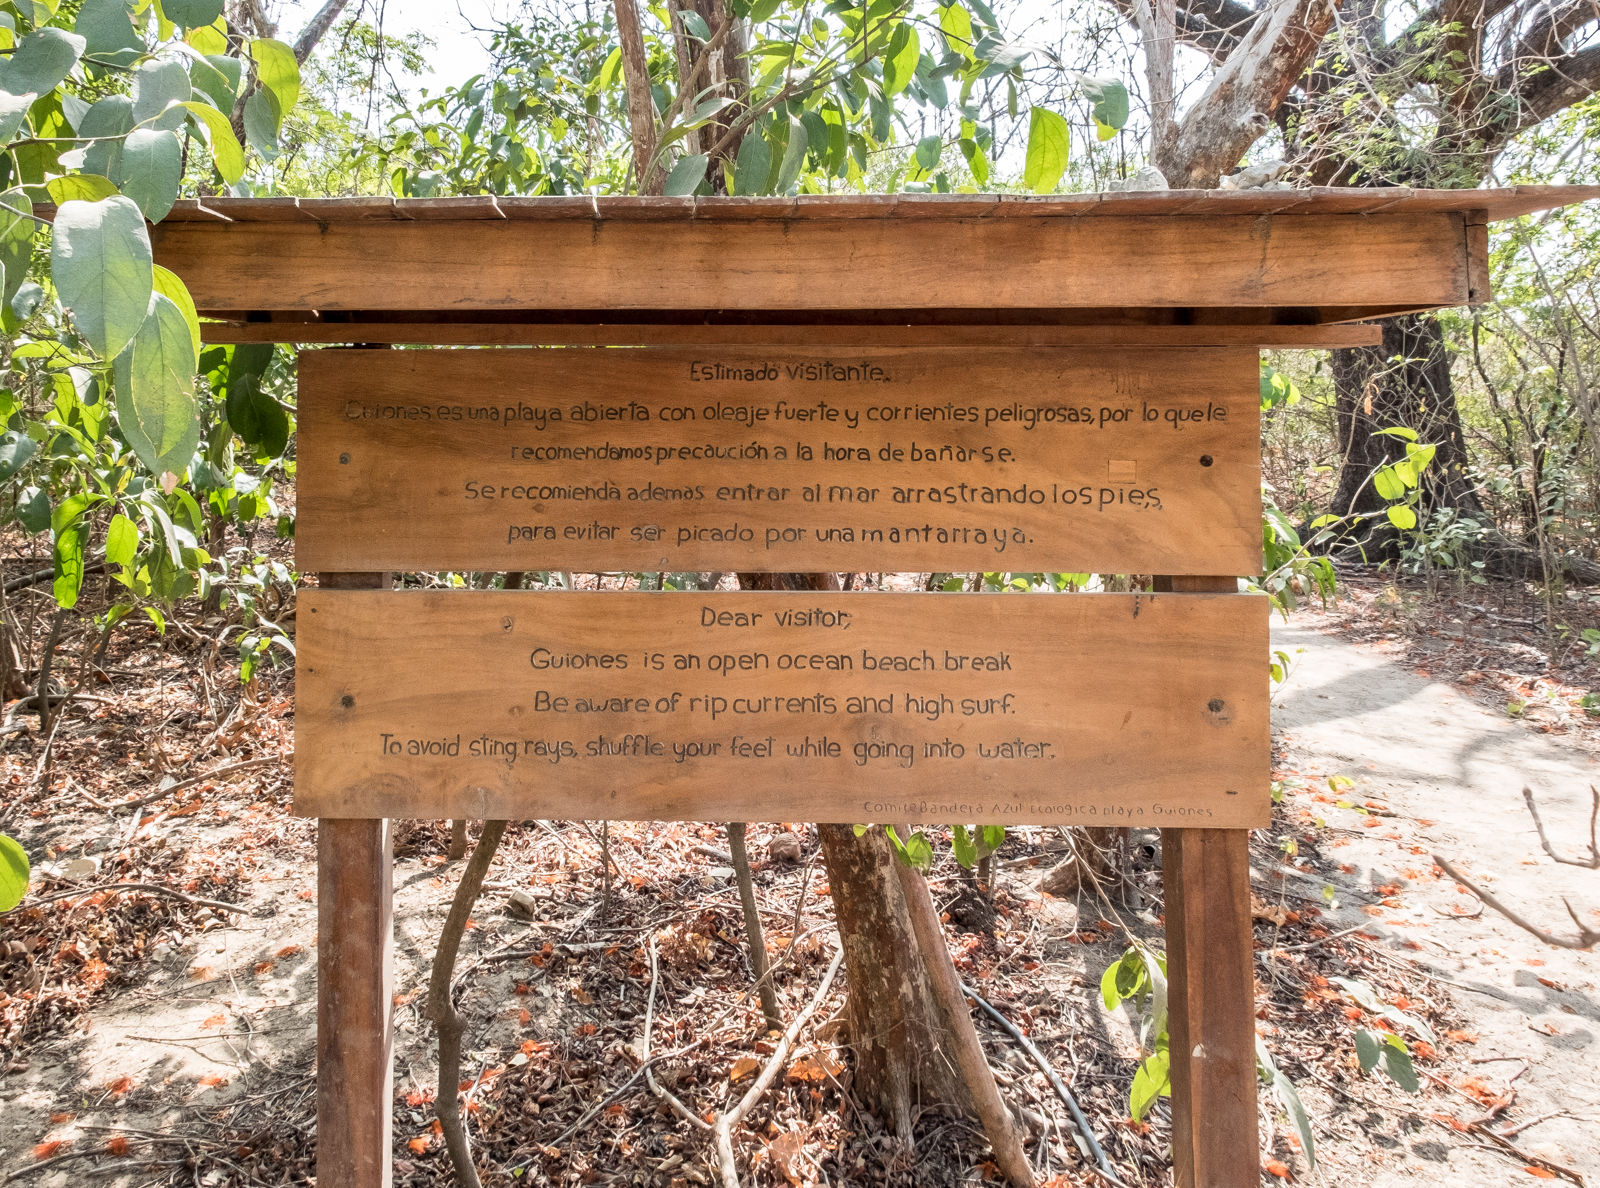 Estimado visitante.
Guiones es una playa abierta con oleaje fuerte y corrientes peligrosas, por lo que le
recomendamos precaución a la hora de bañarse.
Se recomienda ademas entrar al mar arrastrando los pies,
para evitar ser picado por una mantarraya.
Dear visitor,
Guiones is an open ocean beach break
Be aware of rip currents and high surf.
To avoid sting rays, shuffle your feet while going into water.
Comite Bandera Azul Ecologica playa Guiones